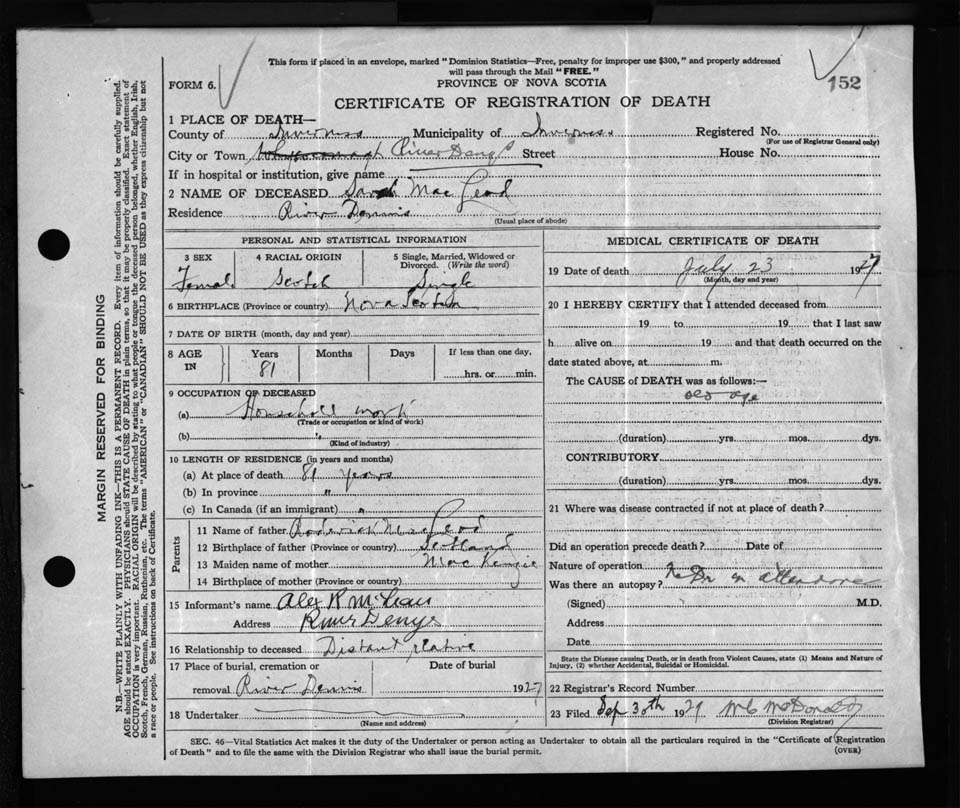 This form if placed in an envelope, marked "Dominion Statistics—Free, penalty for improper use $300," and properly addressed
will pass through the Mail "FREE."
FORM 6.
PROVINCE OF NOVA SCOTIA
152
CERTIFICATE OF REGISTRATION OF DEATH
1 PLACE OF DEATH—
County of Inverness Municipality of Inverness Registered No.
(For use of Registrar General only)
City or Town Whycocomagh River Denys Street House No.
If in hospital or institution, give name
2 NAME OF DECEASED Sarah Mac Leod
Residence River Dennis
(Usual place of abode)
PERSONAL AND STATISTICAL INFORMATION
3 SEX 4 RACIAL ORIGIN 5 Single, Married, Widowed or
Divorced. (Write the word)
Female Scotch Single
6 BIRTHPLACE (Province or country) Nova Scotia
7 DATE OF BIRTH (month, day and year)
8 AGE IN Years Months Days If less than one day,
81 hrs. or min.
9 OCCUPATION OF DECEASED
(a) Household work
(Trade or occupation or kind of work)
(b) "
(Kind of industry)
10 LENGTH OF RESIDENCE (in years and months)
(a) At place of death 81 years
(b) In province "
(c) In Canada (if an immigrant) "
Parents
11 Name of father Roderick Mac Leod
12 Birthplace of father (Province or country) Scotland
13 Maiden name of mother Mac Kenzie
14 Birthplace of mother (Province or country)
15 Informant's name Alex R McLean
Address River Denys
16 Relationship to deceased Distant relative
17 Place of burial, cremation or Date of burial
removal River Dennis 1927
18 Undertaker
(Name and address)
MEDICAL CERTIFICATE OF DEATH
19 Date of death July 23 1927
(Month, day and year)
20 I HEREBY CERTIFY that I attended deceased from
19 to 19 that I last saw
h alive on 19 and that death occurred on the
date stated above, at m.
The CAUSE of DEATH was as follows:—
old age
(duration) yrs. mos. dys.
CONTRIBUTORY
(duration) yrs. mos. dys.
21 Where was disease contracted if not at place of death?
Did an operation precede death? Date of
Nature of operation
Was there an autopsy? No Dr in attendance
(Signed) M.D.
Address
Date
State the Disease causing Death, or in death from Violent Causes, state (1) Means and Nature of
Injury, (2) whether Accidental, Suicidal or Homicidal.
22 Registrar's Record Number
23 Filed Sep 30th 1929 McDonald
(Division Registrar)
SEC. 46—Vital Statistics Act makes it the duty of the Undertaker or person acting as Undertaker to obtain all the particulars required in the "Certificate of Registration
of Death" and to file the same with the Division Registrar who shall issue the burial permit.
(OVER)
MARGIN RESERVED FOR BINDING
N.B.—WRITE PLAINLY WITH UNFADING INK—THIS IS A PERMANENT RECORD. Every item of information should be carefully supplied.
AGE should be stated EXACTLY. PHYSICIANS should STATE CAUSE OF DEATH in plain terms, so that it may be properly classified. Exact statement of
OCCUPATION is very important. RACIAL ORIGIN will be described by stating to what people or tongue the deceased person belonged, whether English, Irish,
Scotch, French, German, Russian, Ruthenian, etc. The terms "AMERICAN" or "CANADIAN" SHOULD NOT BE USED as they express citizenship but not
a race or people. See instructions on back of Certificate.